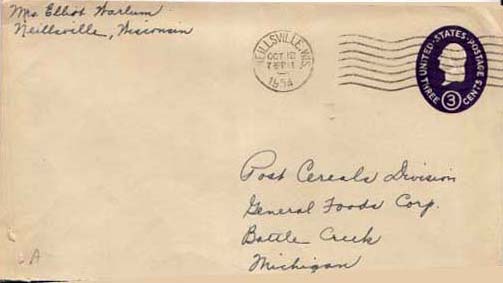 Mrs. Elliot Warlum
Neillsville, Wisconsin
NEILLSVILLE, WIS.
OCT 
1954
UNITED STATES POSTAGE
THREE 3 CENTS
Post Cereals Division
General Foods Corp.
Battle Creek
Michigan
A